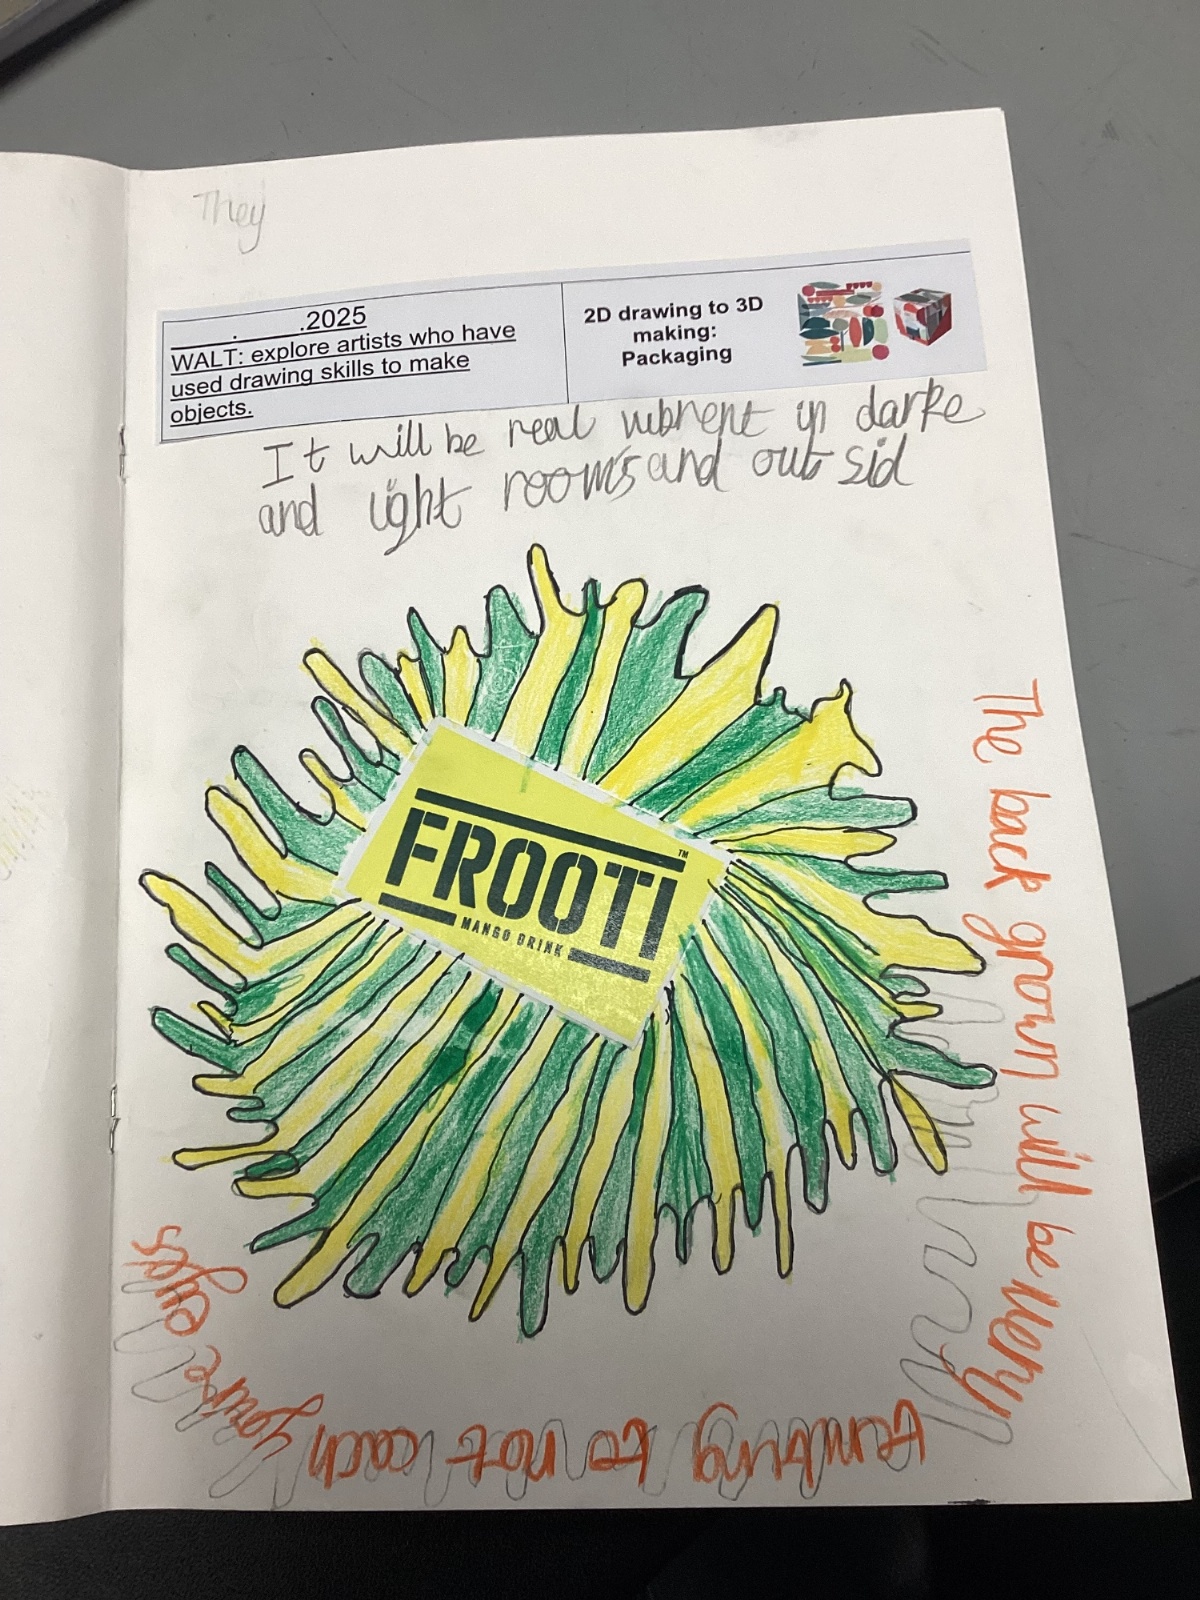 They
__.__.2025
WALT: explore artists who have
used drawing skills to make
objects.
2D drawing to 3D
making:
Packaging
It will be real vibrent in darke
and light rooms and out sid
FROOTI
TM
MANGO DRINK
The back groun will be very
temting to not cach youre
eyes